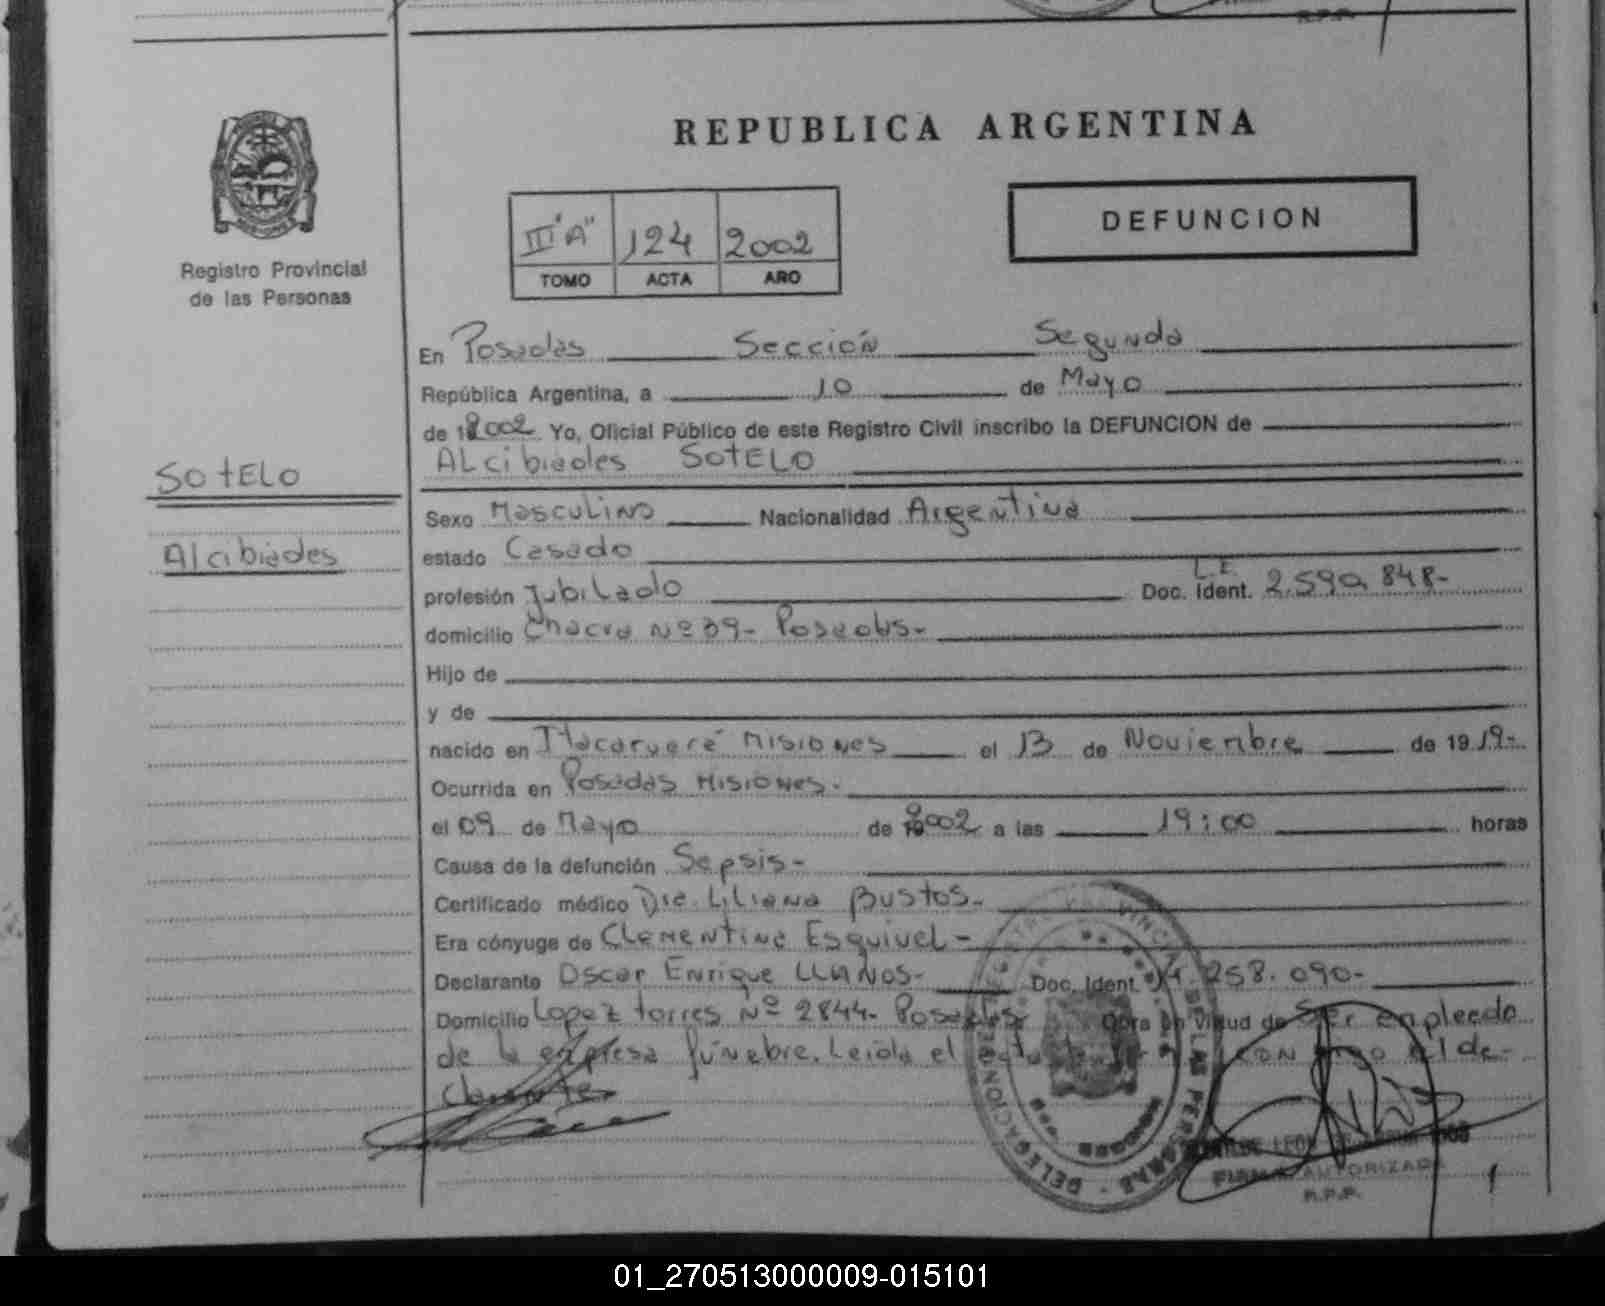 REPUBLICA ARGENTINA
III "A" 124 2002
TOMO ACTA AÑO
DEFUNCION
Registro Provincial
de las Personas
SOTELO
Alcibiades
En Posadas Sección Segunda
República Argentina, a 10 de Mayo
de 2002 Yo, Oficial Público de este Registro Civil inscribo la DEFUNCION de
ALcibiades SOTELO
Sexo Masculino Nacionalidad Argentina
estado Casado
profesión Jubilado Doc. Ident. L.E. 2.590.848-
domicilio Chacra Nº 39- Posadas-
Hijo de
y de
nacido en Misiones el 13 de Noviembre de 1919-
Ocurrida en Posadas Misiones-
el 09 de Mayo de 2002 a las 19:00 horas
Causa de la defunción Sepsis-
Certificado médico Dra. Liliana Bustos-
Era cónyuge de Clementina Esquivel-
Declarante Oscar Enrique LLANOS- Doc. Ident. 258.090-
Domicilio Lopez torres Nº 2844- Posadas- Obra en virtud de Ser empleado
de la empresa fúnebre. Leida el acta la con migo el de-
clarante
FIRMA AUTORIZADA
R.P.P.
01_270513000009-015101